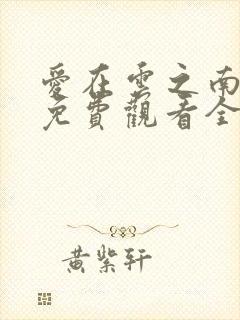 愛在雲之南
免費觀看全
黃紫轩